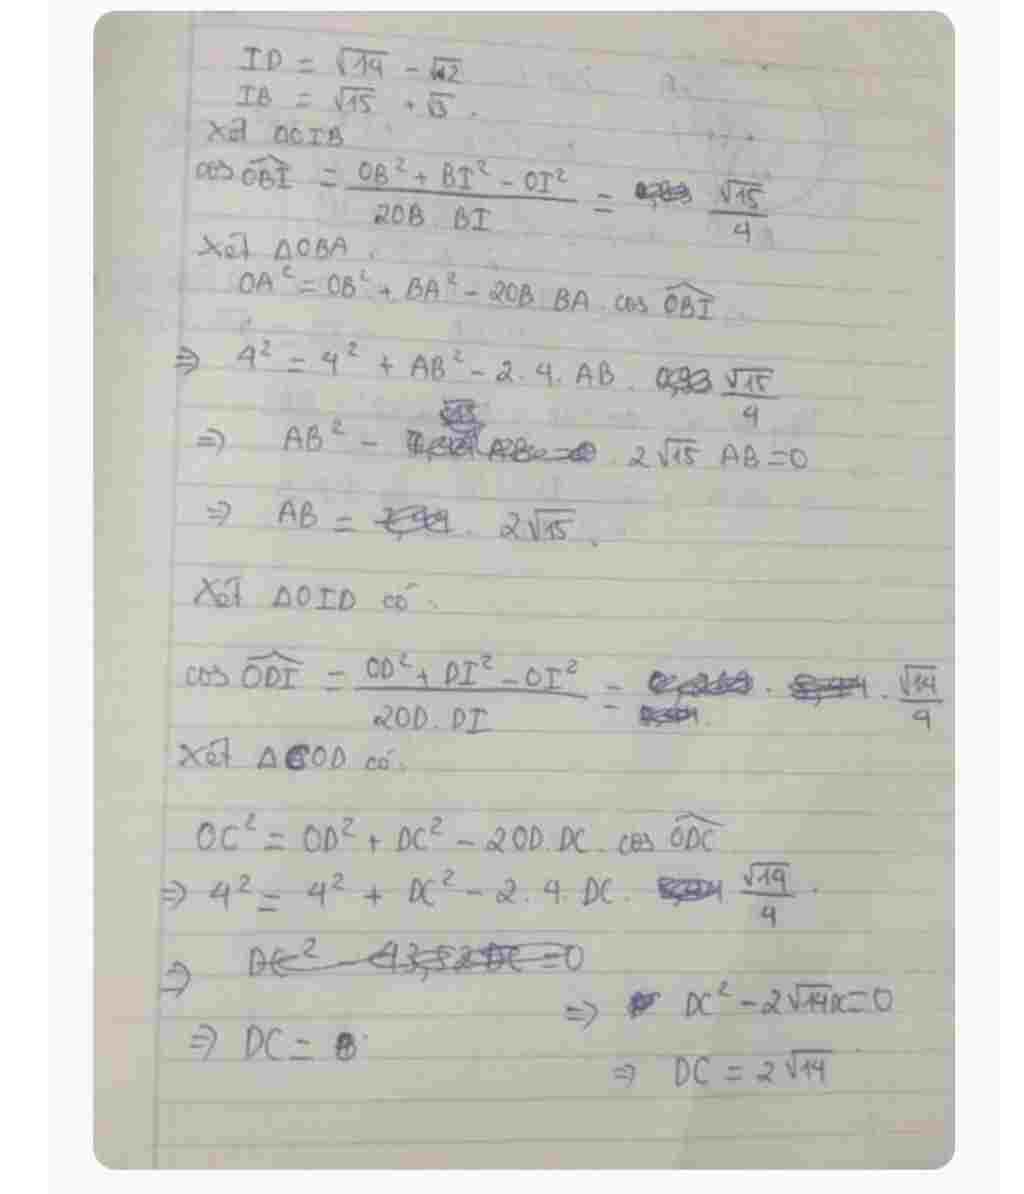 ID = √14 - √2
IB = √15 + √3.
Xét ΔOIB
cos OBI = (OB² + BI² - OI²) / (2OB. BI) = √15/4
Xét ΔOBA.
OA² = OB² + BA² - 2OB. BA. cos OBI
⇒ 4² = 4² + AB² - 2. 4. AB. √15/4
⇒ AB² - 2√15 AB = 0
⇒ AB = 2√15.
Xét ΔOID có.
cos ODI = (OD² + DI² - OI²) / (2OD. DI) = √14/4
Xét ΔCOD có.
OC² = OD² + DC² - 2OD. DC. cos ODC
⇒ 4² = 4² + DC² - 2. 4. DC. √14/4.
⇒
⇒ DC² - 2√14 DC = 0
⇒ DC =
⇒ DC = 2√14